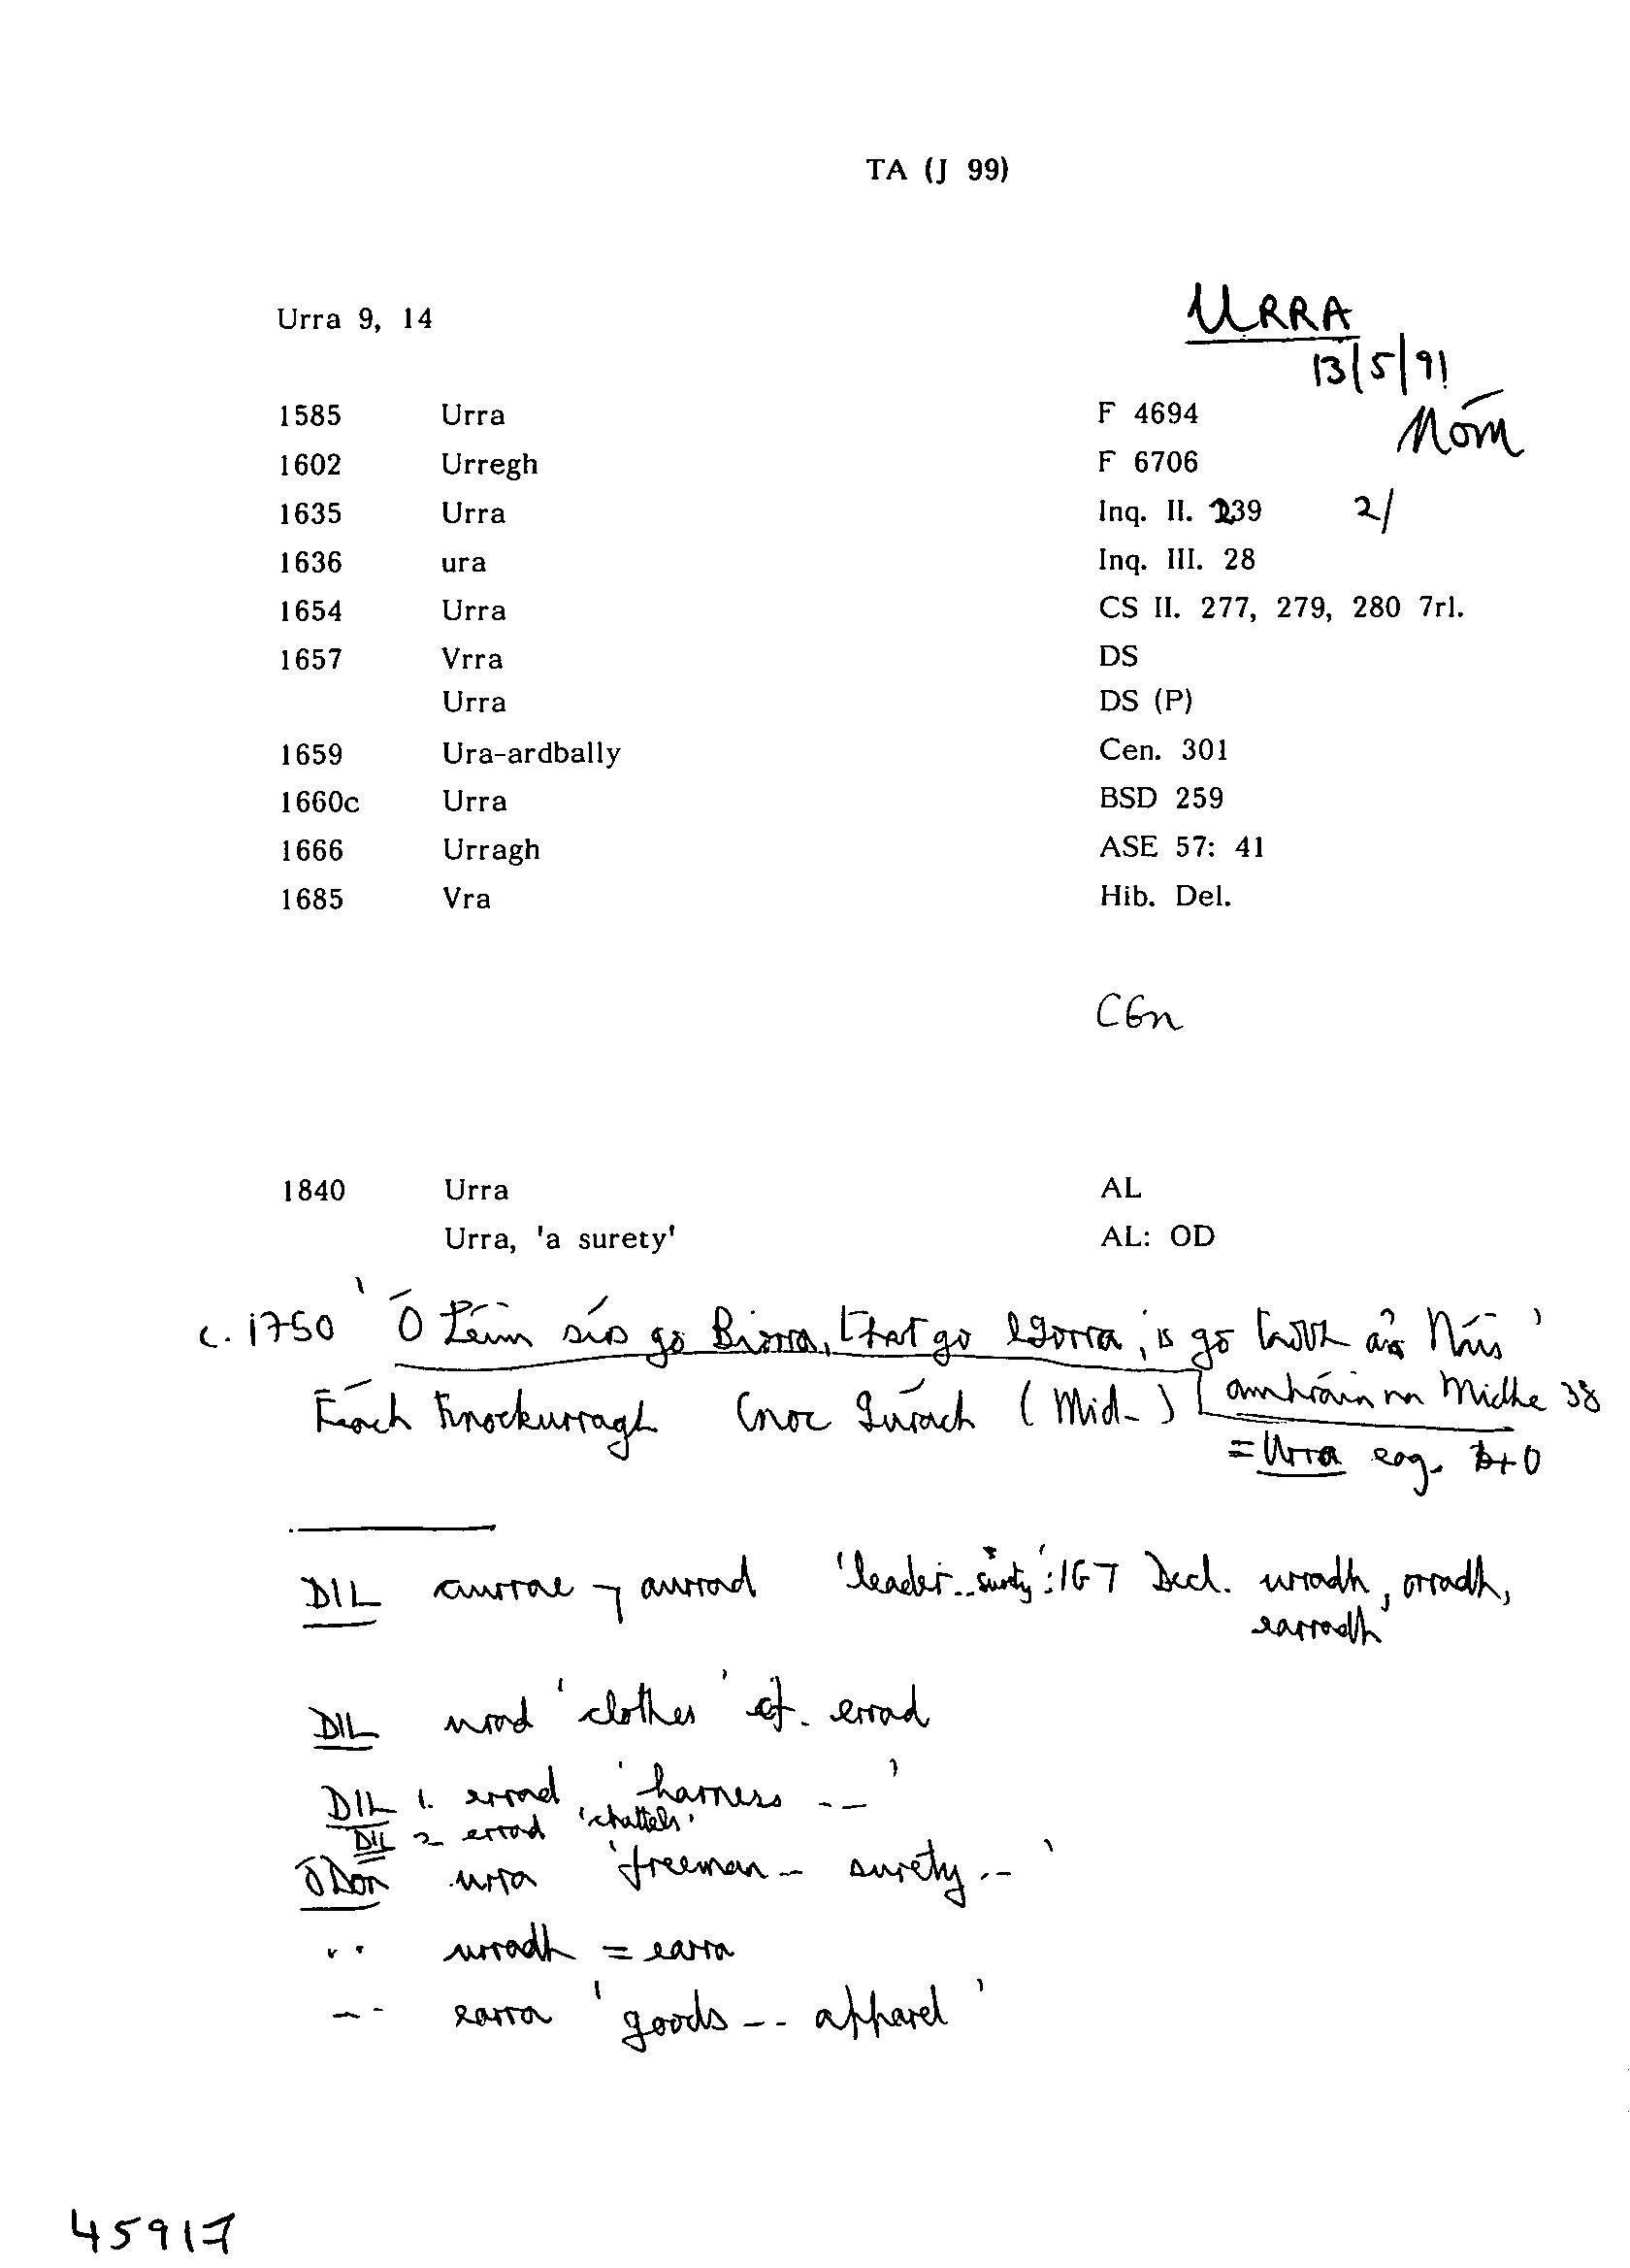 TA (J 99)
Urra 9, 14
URRA
13/5/91
NÓM
1585 Urra F 4694
1602 Urregh F 6706
1635 Urra Inq. II. 239 2/
1636 ura Inq. III. 28
1654 Urra CS II. 277, 279, 280 7rl.
1657 Vrra DS
Urra DS (P)
1659 Ura-ardbally Cen. 301
1660c Urra BSD 259
1666 Urragh ASE 57: 41
1685 Vra Hib. Del.
CGn
1840 Urra AL
Urra, 'a surety' AL: OD
c. 1750 'Ó Léim síos go Biorra, go is go Nás'
Féach Knockurragh Cnoc Iúrach (Mid-) Amhráin na Midhe 38
= Urra eag.
DIL aurrae ⁊ aurrad 'leader -- surety': IGT Decl. urradh, orradh,
earradh
DIL urad 'clothes' cf. errad
DIL 1. errad 'harness --'
DIL 2 errad 'chattels'
Ó Dón urra 'freeman -- surety --'
" urradh = earra
-- earra 'goods -- apparel'
45917